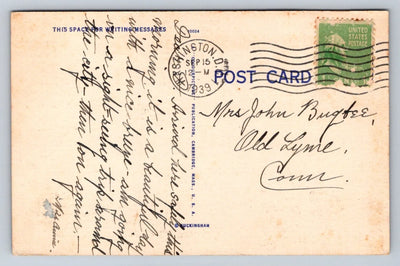 THIS SPACE FOR WRITING MESSAGES
WASHINGTON, D.C.
SEP 15
M
1939
UNITED
STATES
POSTAGE
POST CARD
Mrs John Bugbee,
Old Lyme,
Conn.
arrived here safely this
morning it is a beautiful day
with a nice breeze - am going
on a sight-seeing trip around
the city then on again. -
PUBLICATION, CAMBRIDGE, MASS., U.S.A.